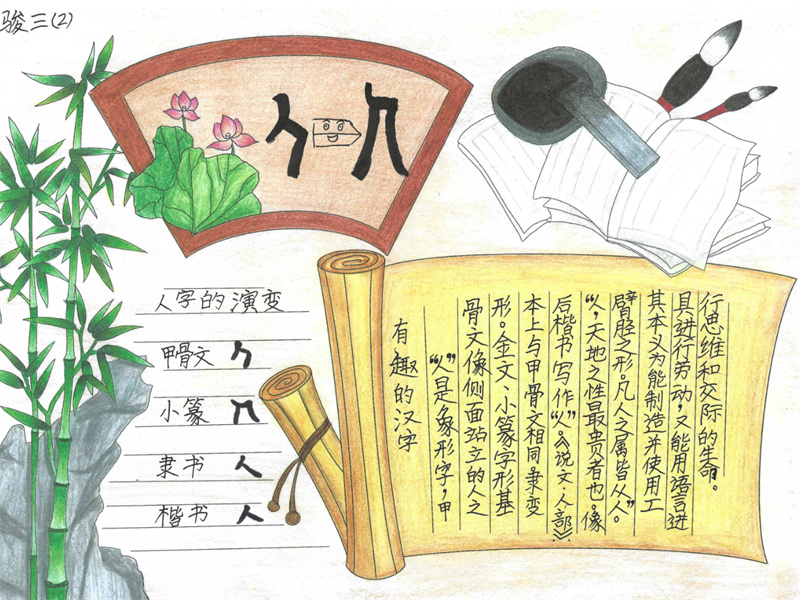 骏三(2)
人字的演变
甲骨文
小篆
隶书 人
楷书 人
有趣的汉字
“人”是象形字,甲
骨文像侧面站立的人之
形。金文、小篆字形基
本上与甲骨文相同隶变
后楷书写作“人”。《说文·人部》:
“人,天地之性最贵者也。像
臂胫之形,凡人之属皆从人。”
其本义为能制造并使用工
具进行劳动,又能用语言进
行思维和交际的生命。